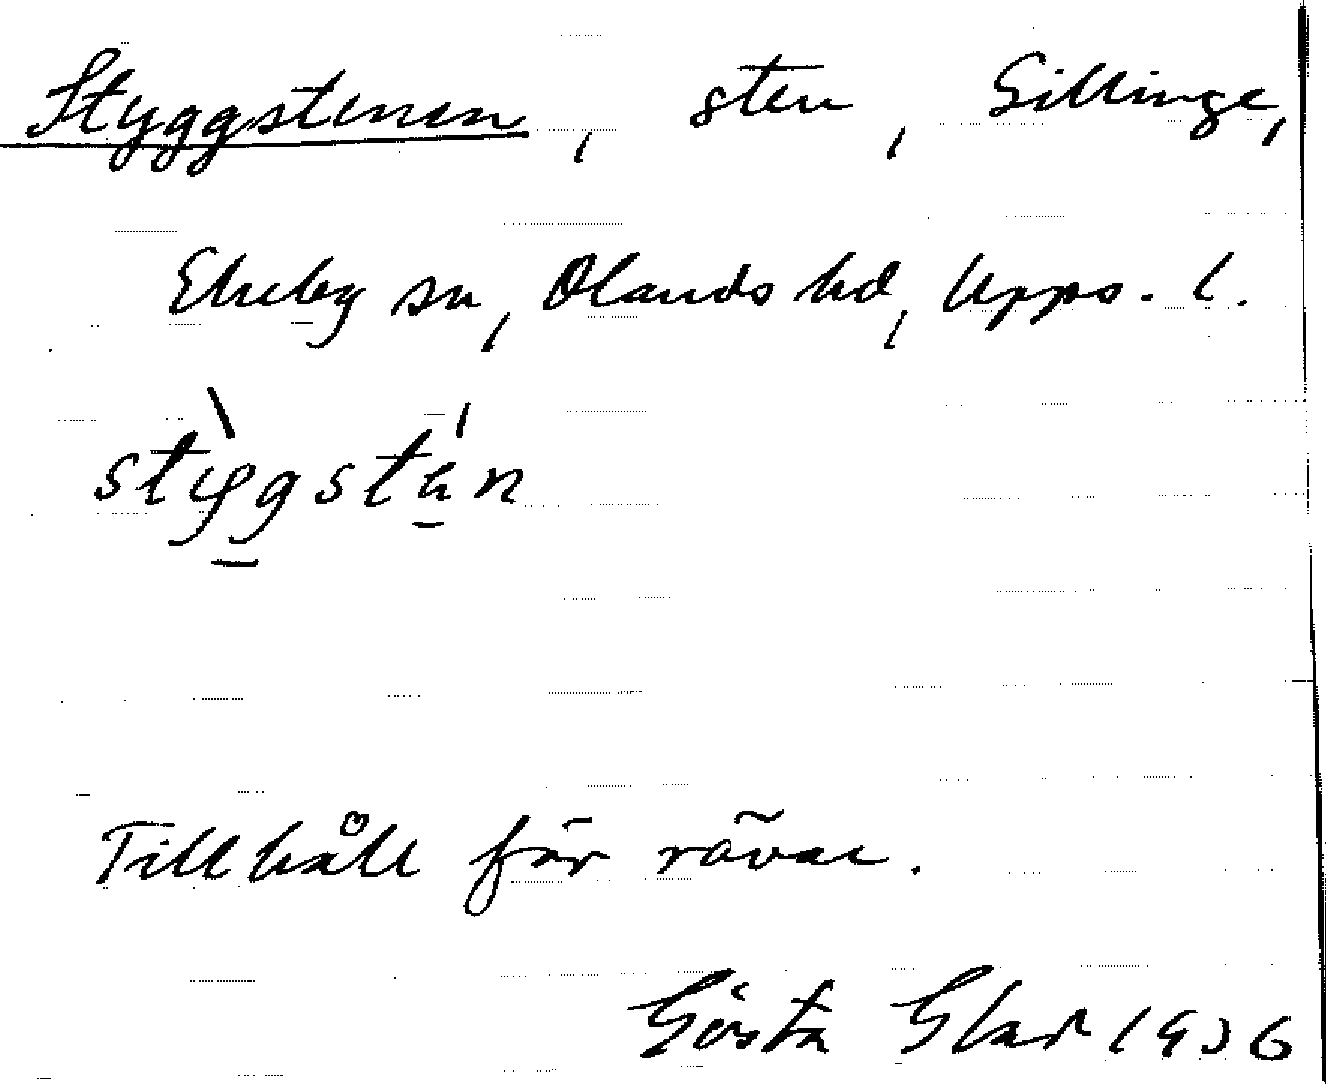 Styggstenen, sten, Gillinge,
Ekeby sn, Olands hd, Upps. l.
Tillhåll för rävar.
Gösta Glad 1936